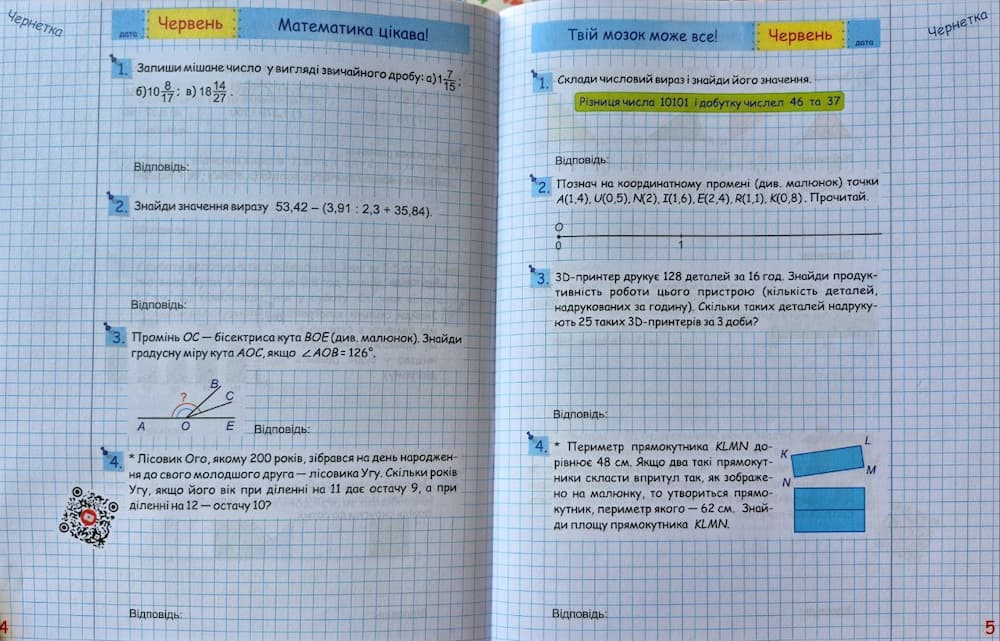 Чернетка
дата
Червень
Математика цікава!
1. Запиши мішане число у вигляді звичайного дробу: а) 1 7/15;
б) 10 8/17; в) 18 14/27.
Відповідь:
2. Знайди значення виразу 53,42 – (3,91 : 2,3 + 35,84).
Відповідь:
3. Промінь OC — бісектриса кута BOE (див. малюнок). Знайди
градусну міру кута AOC, якщо ∠AOB = 126°.
B
?
C
A O E
Відповідь:
4. * Лісовик Ого, якому 200 років, зібрався на день народжен-
ня до свого молодшого друга — лісовика Угу. Скільки років
Угу, якщо його вік при діленні на 11 дає остачу 9, а при
діленні на 12 — остачу 10?
Відповідь:
4
Твій мозок може все!
Червень
дата
Чернетка
1. Склади числовий вираз і знайди його значення.
Різниця числа 10101 і добутку чисел 46 та 37
Відповідь:
2. Познач на координатному промені (див. малюнок) точки
A(1,4), U(0,5), N(2), I(1,6), E(2,4), R(1,1), K(0,8). Прочитай.
O
0 1
3. 3D-принтер друкує 128 деталей за 16 год. Знайди продук-
тивність роботи цього пристрою (кількість деталей,
надрукованих за годину). Скільки таких деталей надруку-
ють 25 таких 3D-принтерів за 3 доби?
Відповідь:
4. * Периметр прямокутника KLMN до-
рівнює 48 см. Якщо два такі прямокут-
ники скласти впритул так, як зображе-
но на малюнку, то утвориться прямо-
кутник, периметр якого — 62 см. Знай-
ди площу прямокутника KLMN.
L
K
M
N
Відповідь:
5